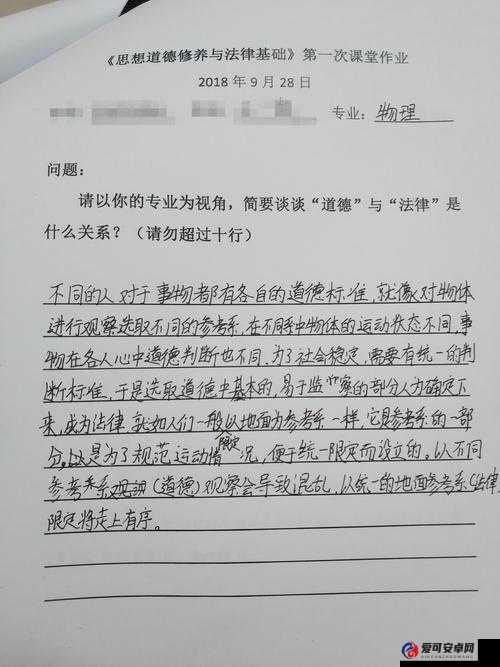 《思想道德修养与法律基础》第一次课堂作业
2018 年 9 月 28 日
专业：物理
问题：
请以你的专业为视角，简要谈谈“道德”与“法律”是
什么关系？（请勿超过十行）
不同的人对于事物都有各自的道德标准，就像对物体
进行观察选取不同的参考系，在不同系中物体的运动状态不同，事
物在各人心中道德判断也不同。为了社会稳定，需要有统一的判
断标准，于是选取道德中基本的，易于监察的部分人为确定下
来，成为法律，就如人们一般以地面为参考系一样，它是参考系的一部
分。是为了规范限定运动情况，便于统一限定而设立的。以不同
参考系（道德）观察会导致混乱，以统一的地面参考系（法律）
限定将走上有序。
爱可安卓网